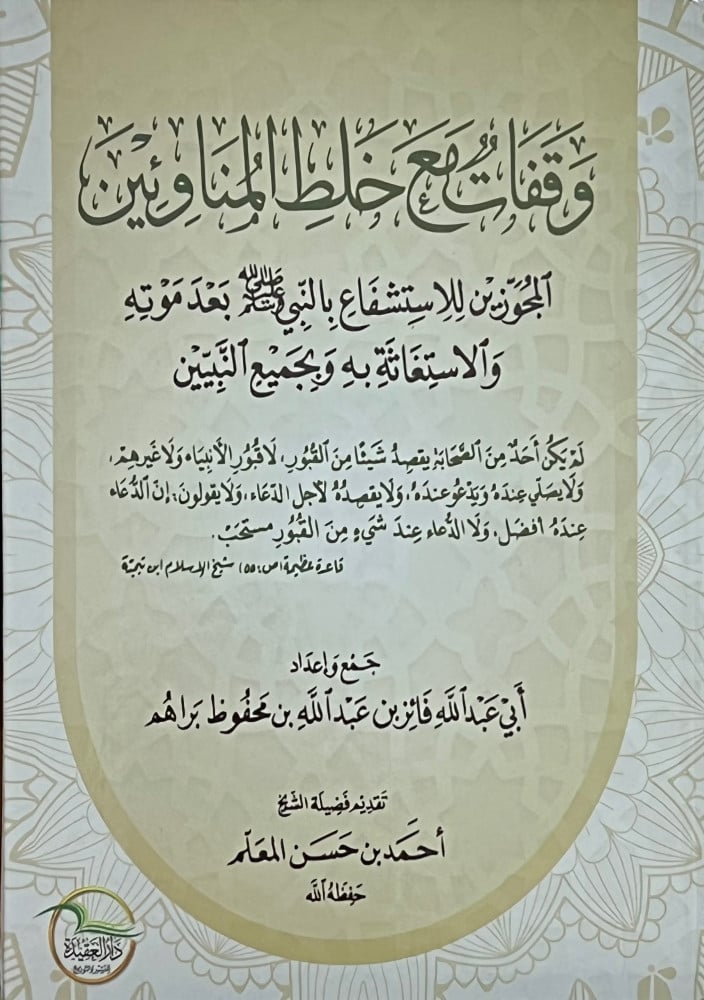 وَقَفَاتٌ مَعَ خَلَطِ المُنَاوِئِيْنَ
المُجَوِّزِيْن لِلِاسْتِشْفَاعِ بِالنَّبِيِّ ﷺ بَعْدَ مَوْتِهِ
وَالاسْتِغَاثَةِ بِهِ وَبِجَمِيْعِ النَّبِيّيْن
لَمْ يَكُنْ أَحَدٌ مِنَ الصَّحَابَة يقصِدُ شَيْئًا مِنَ القُبُورِ، لَا قُبُورِ الأَنبِيَاء وَلَا غَيرهِمْ،
وَلَا يصَلّي عِندَهُ وَيَدْعُو عندَهُ، وَلَا يقصِدُهُ لأجلِ الدّعَاء، وَلَا يقولونَ: إنّ الدُّعَاء
عِندَهُ أفضَل، وَلَا الدُّعَاء عِندَ شَيْءٍ مِنَ القُبُورِ مستَحَبّ.
قاعدة عظيمة (ص: ٥٥) شيخ الإسلام ابن تيميّة
جَمْع وَإعدَاد
أَبِيْ عَبْدِ اللَّهِ فَائِز بن عَبْدِ اللَّهِ بن مَحْفُوظ بَرَاهُم
تَقدِيْم فَضِيلَة الشَّيْخ
أَحْمَد بن حَسَن المعَلّم
حَفِظَهُ اللَّه
دَارُ العَقِيدَة
للنشر والتوزيع